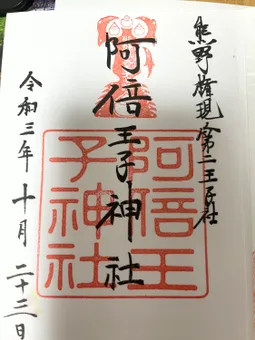 熊野権現第二王子社
阿倍王子神社
阿倍王
子神社
令和三年十月二十三日